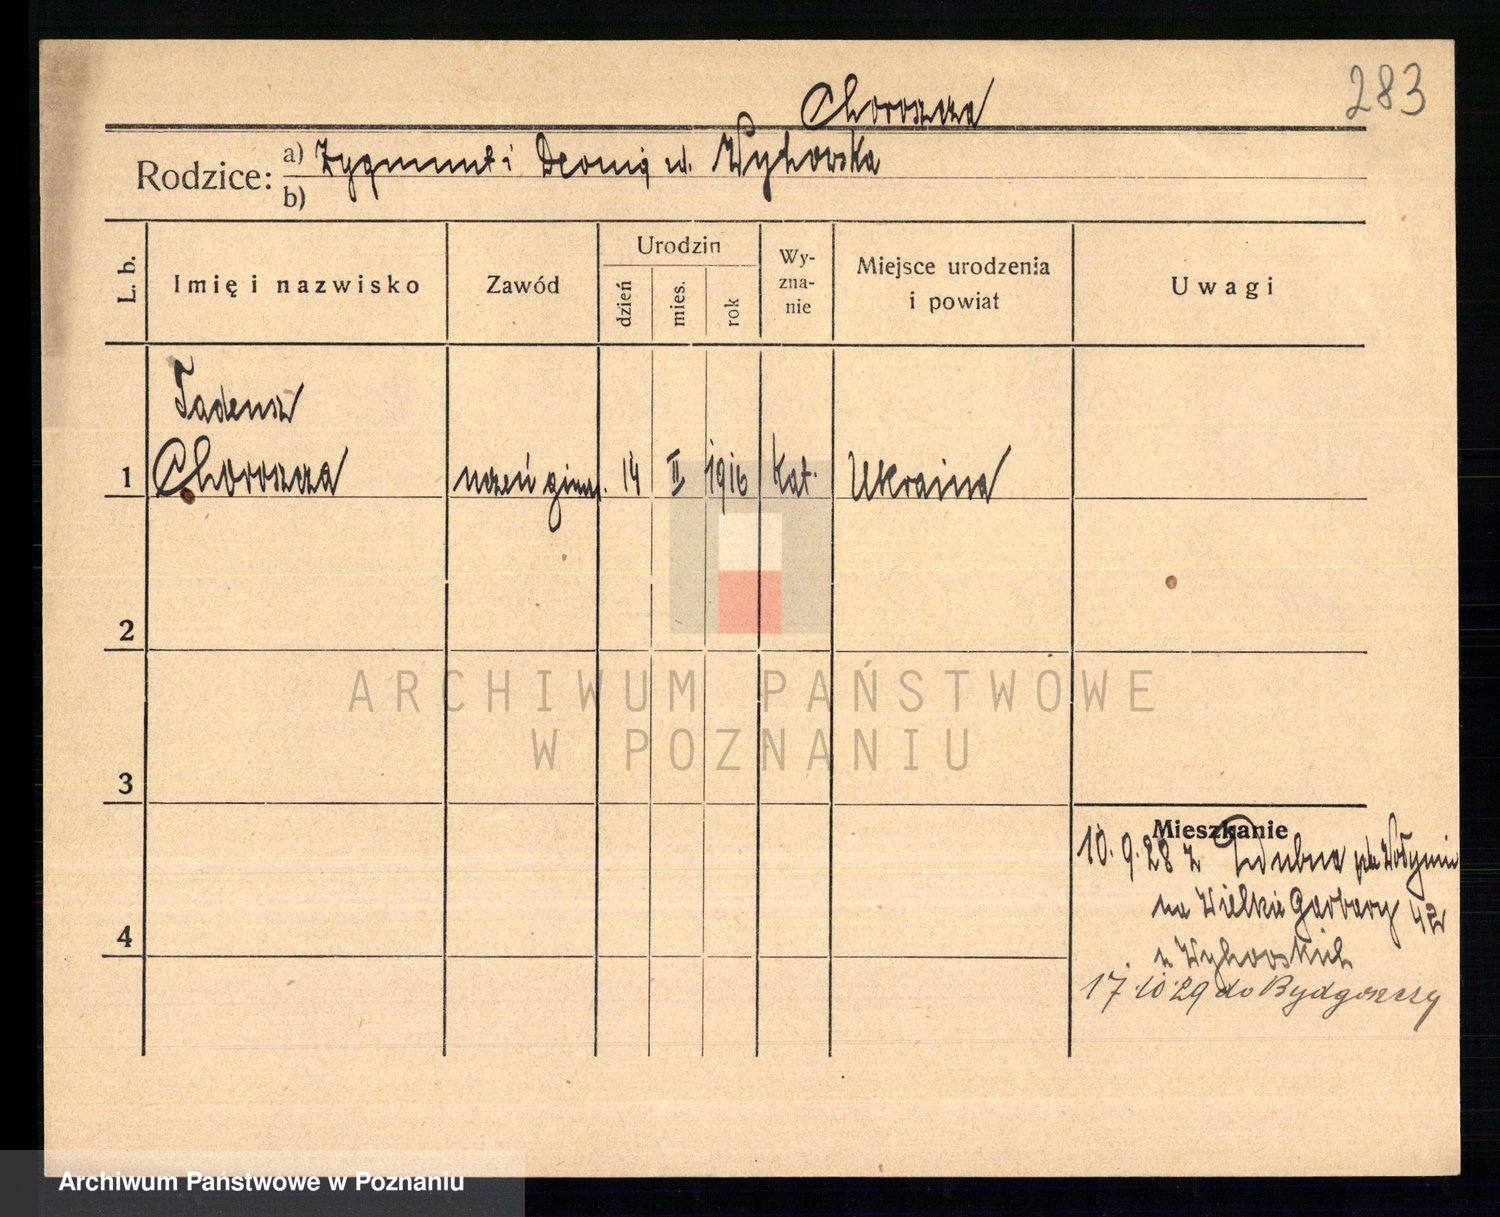 283
Chorosza
Rodzice: a) Zygmunt i Leonia ur. Wyhowska
b)
L. b.
Imię i nazwisko
Zawód
Urodzin
dzień
mies.
rok
Wy-
zna-
nie
Miejsce urodzenia
i powiat
Uwagi
Tadeusz
1 Chorosza uczeń gimn. 14 II 1916 kat. Ukraina
2
3
Mieszkanie
10.9.28 z Dubna Wołyniu
na Wielkie Garbary 42
4
u Wyhowskich
17.10.29 do Bydgoszczy
ARCHIWUM PAŃSTWOWE
W POZNANIU
Archiwum Państwowe w Poznaniu